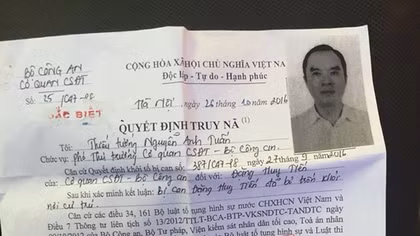 CỘNG HÒA XÃ HỘI CHỦ NGHĨA VIỆT NA
Độc lập - Tự do - Hạnh phúc
BỘ CÔNG AN
CƠ QUAN CSĐT
Số: 25/C47-P8
ĐẶC BIỆT
Hà Nội, ngày 26 tháng 10 năm 2016
QUYẾT ĐỊNH TRUY NÃ (1)
Tôi: Thiếu tướng Nguyễn Anh Tuấn
Chức vụ: Phó Thủ trưởng Cơ quan CSĐT - Bộ Công an.
Căn cứ Quyết định khởi tố bị can số 387/C47-P8, ngày 27 tháng 9 năm 2016
của Cơ quan CSĐT - Bộ Công an, đối với: Đặng Thuỵ Tiên
Sau khi xác minh kết luận: Bị can Đặng Thuỵ Tiên đã bỏ trốn khỏi
nơi cư trú.
Căn cứ các điều 34, 161 Bộ luật tố tụng hình sự nước CHXHCN Việt Nam và
Điều 7 Thông tư liên tịch số 13/2012/TTLT-BCA-BTP-VKSNDTC-TANDTC
của Bộ Công an, Bộ Tư pháp, Viện kiểm sát nhân dân tối cao, Toà án nhân